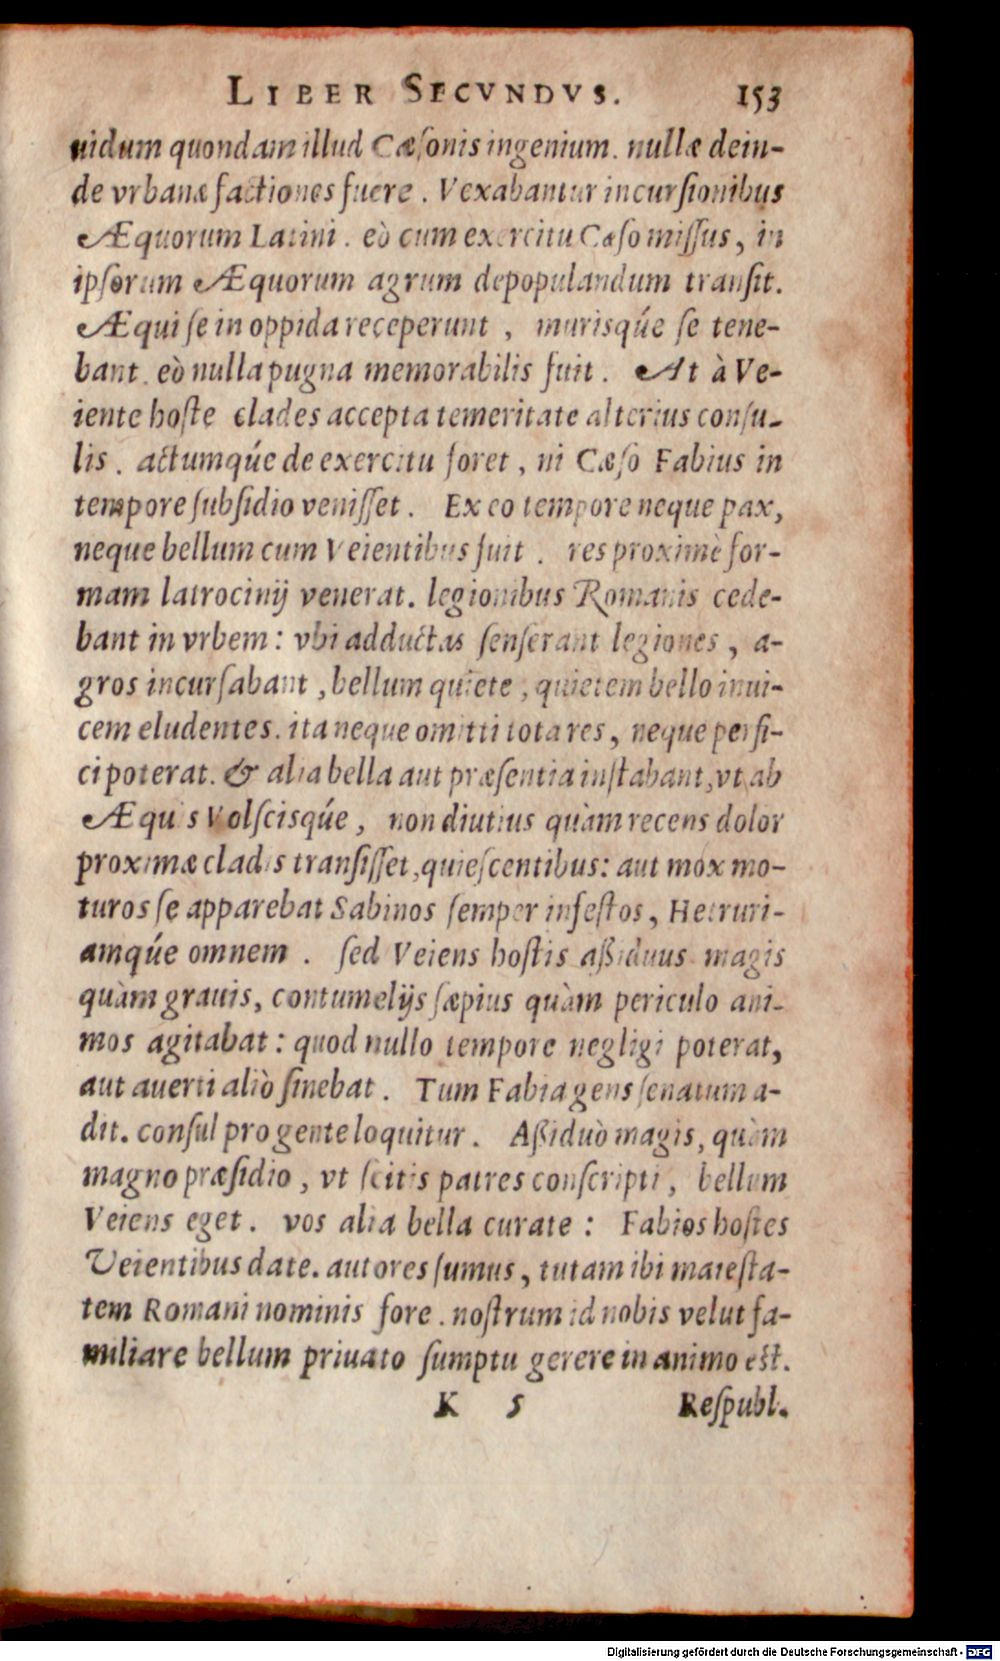 LIBER SECVNDVS. 153
uidum quondam illud Cæsonis ingenium. nullæ dein-
de vrbanæ factiones fuere. Vexabantur incursionibus
Æquorum Latini. eò cum exercitu Cæso missus, in
ipsorum Æquorum agrum depopulandum transit.
Æqui se in oppida receperunt, murisq́ue se tene-
bant. eò nulla pugna memorabilis fuit. At à Ve-
iente hoste clades accepta temeritate alterius consu-
lis. actumq́ue de exercitu foret, ni Cæso Fabius in
tempore subsidio venisset. Ex eo tempore neque pax,
neque bellum cum Veientibus fuit. res proximè for-
mam latrocinij venerat. legionibus Romanis cede-
bant in vrbem: vbi adductas senserant legiones, a-
gros incursabant, bellum quiete, quietem bello inui-
cem eludentes. ita neque omitti tota res, neque perfi-
ci poterat. & alia bella aut præsentia instabant, vt ab
Æquis Volscisq́ue, non diutius quàm recens dolor
proximæ cladis transisset, quiescentibus: aut mox mo-
turos se apparebat Sabinos semper infestos, Hetruri-
amq́ue omnem. sed Veiens hostis aßiduus magis
quàm grauis, contumelijs sæpius quàm periculo ani-
mos agitabat: quod nullo tempore negligi poterat,
aut auerti aliò sinebat. Tum Fabia gens senatum a-
dit. consul pro gente loquitur. Aßiduò magis, quàm
magno præsidio, vt scitis patres conscripti, bellum
Veiens eget. vos alia bella curate: Fabios hostes
Veientibus date. autores sumus, tutam ibi maiesta-
tem Romani nominis fore. nostrum id nobis velut fa-
miliare bellum priuato sumptu gerere in animo est.
K 5 Respubl.
Digitalisierung gefördert durch die Deutsche Forschungsgemeinschaft - DFG